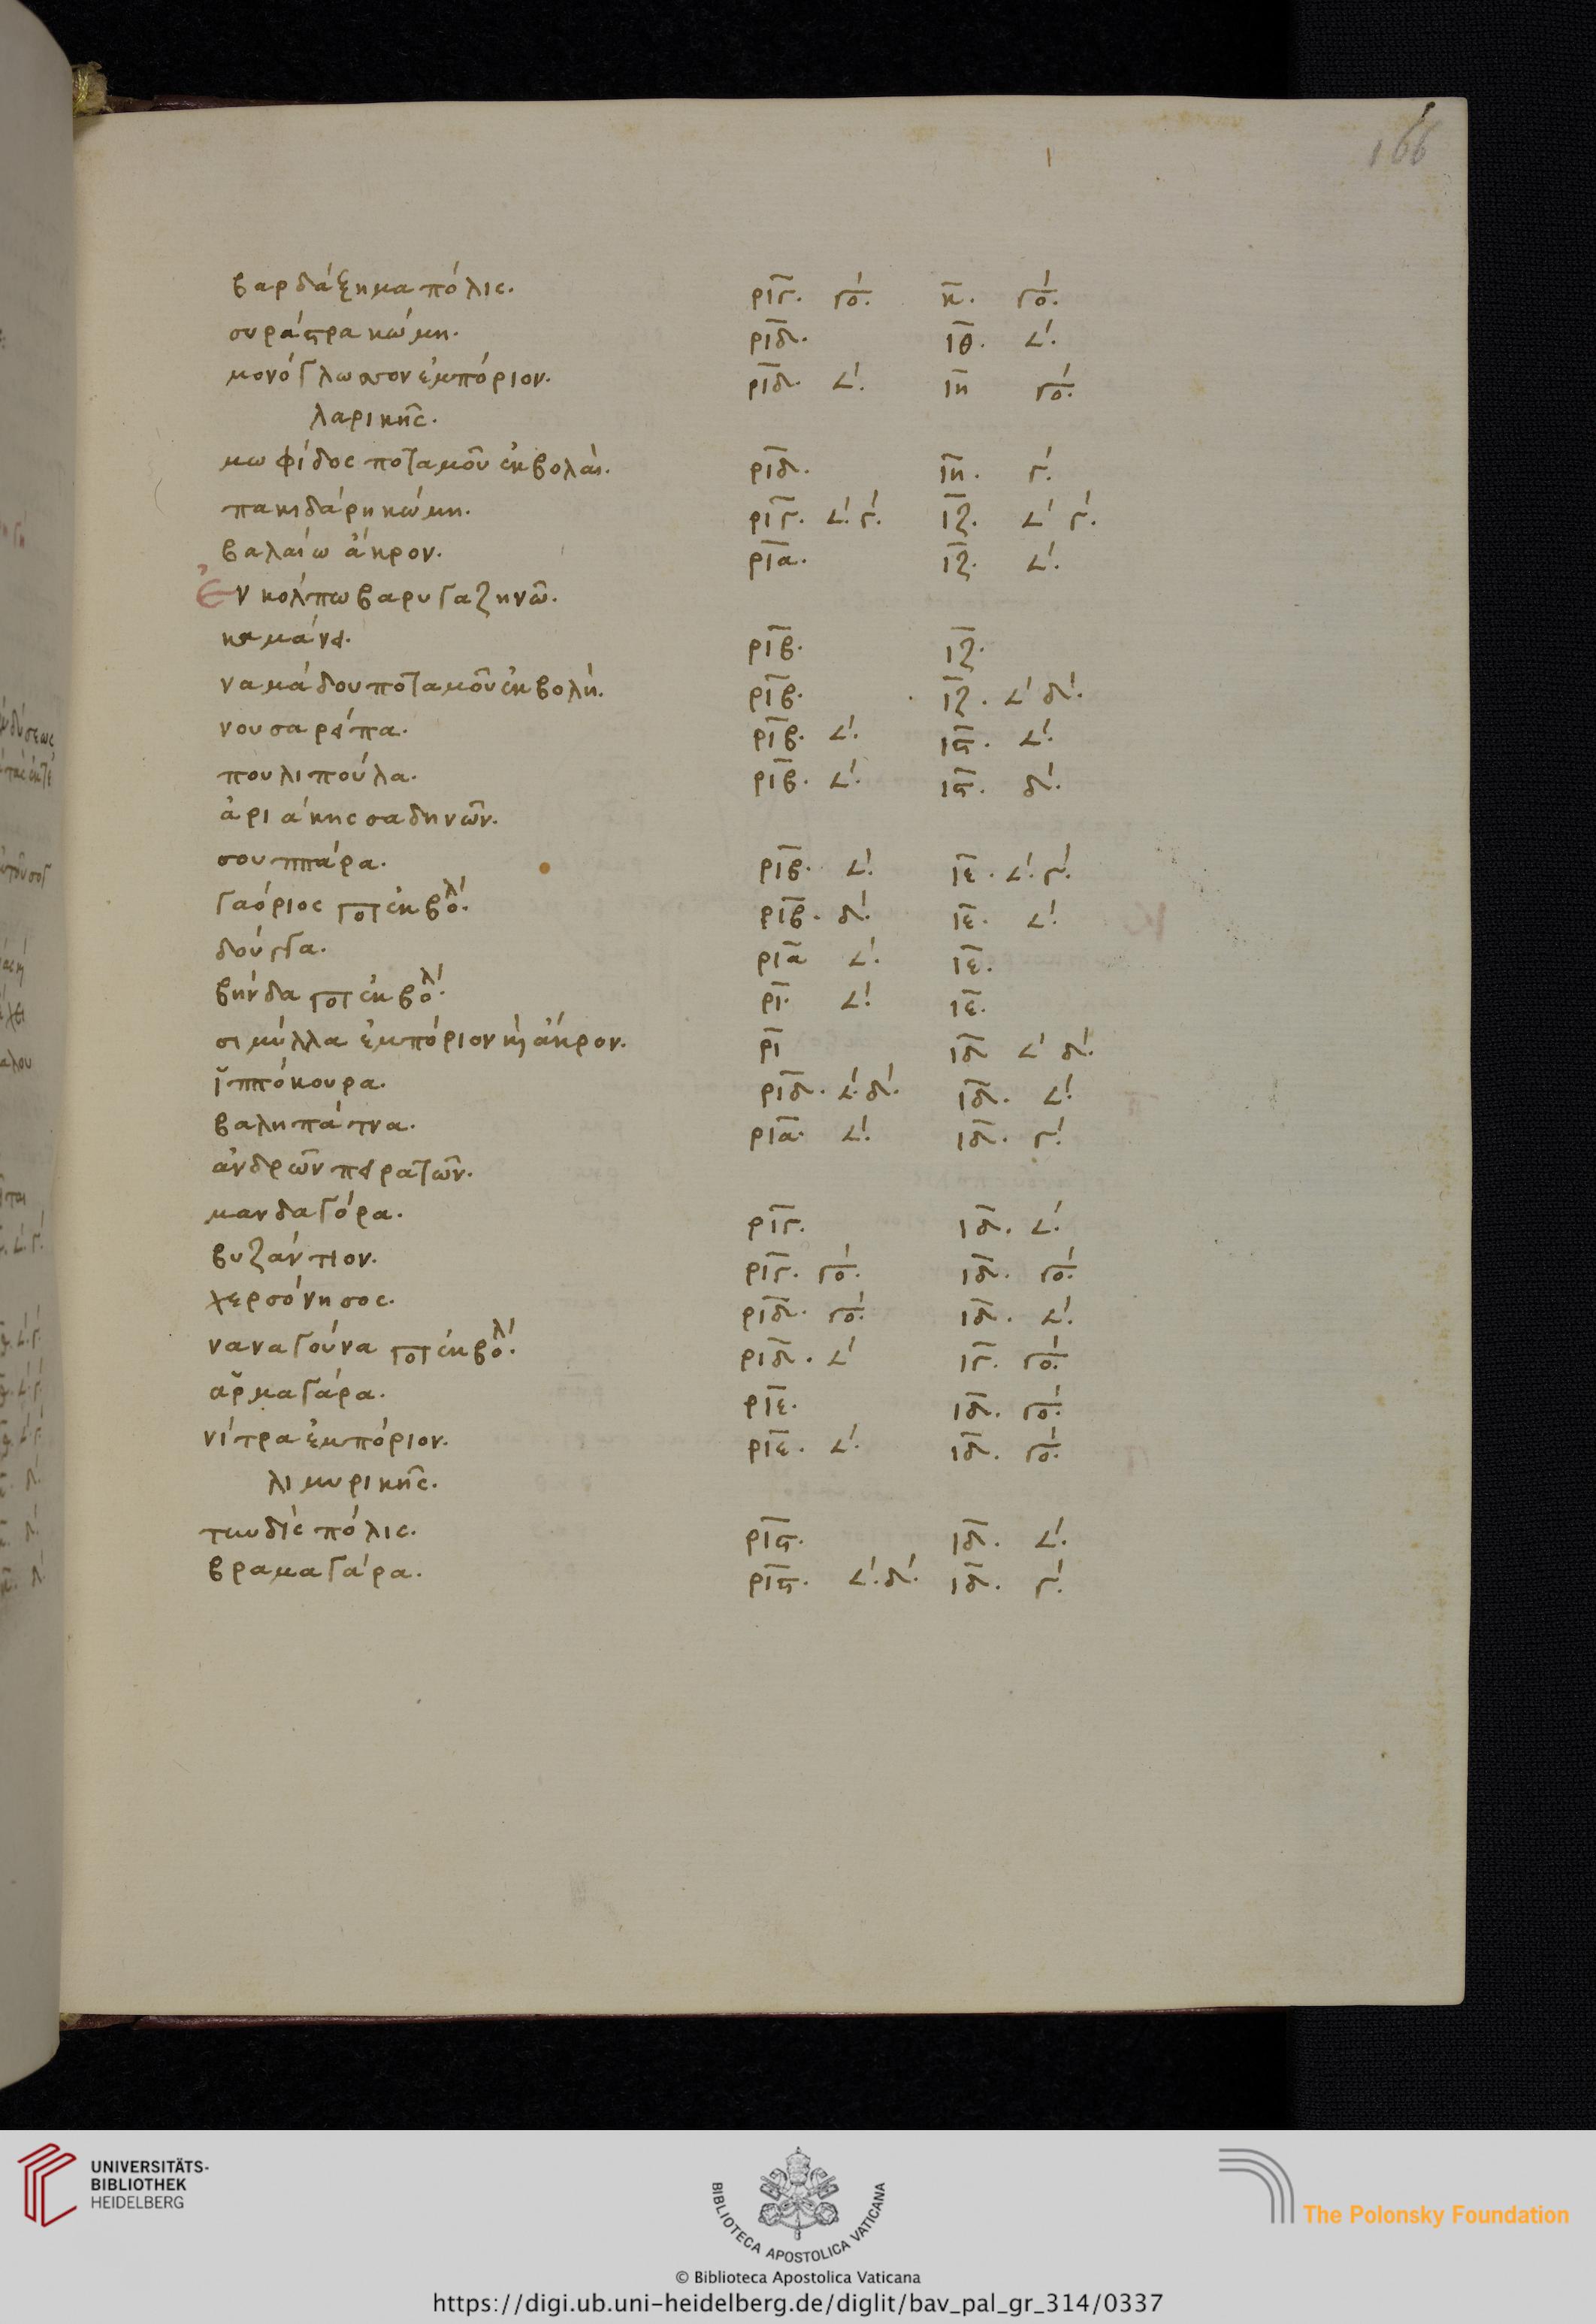 166
βαρδάξημα πόλις. ριγ. γο. κ. γο.
συράστρα κώμη. ριδ. ιθ. ∠.
μονόγλωσσον ἐμπόριον. ριδ. ∠. ιη γο.
λαρικῆς.
μωφίδος ποταμοῦ ἐκβολάι. ριδ. ιη. γ.
πακιδάρη κώμη. ριγ. ∠. γ. ιζ. ∠ γ.
βαλαίω ἄκρον. ρια. ιζ. ∠.
Ἐν κόλπω βαρυγαζηνῶ.
καμάνα. ριβ. ιζ.
ναμάδου ποταμοῦ ἐκβολή. ριβ. ιζ. ∠ δ.
νουσαράπα. ριβ. ∠. ις. ∠.
πουλιπούλα. ριβ. ∠. ις. δ.
ἀριάκης σαδηνῶν.
σουππάρα. ριβ. ∠. ιε. ∠. γ.
γαόριος ποτ ἐκβολ. ριβ. δ. ιε. ∠.
δούγγα. ρια ∠. ιε.
βήνδα ποτ ἐκβολ. ρι. ∠. ιε.
σιμύλλα ἐμπόριον κὶ ἄκρον. ρι ιδ ∠ δ.
ἱππόκουρα. ριδ. ∠. δ. ιδ. ∠.
βαληπάτνα. ρια. ∠. ιδ. γ.
ἀνδρῶν πειρατῶν.
μανδαγόρα. ριγ. ιδ. ∠.
βυζάντιον. ριγ. γο. ιδ. γο.
χερσόνησος. ριδ. γο. ιδ. ∠.
ναναγούνα ποτ ἐκβολ. ριδ. ∠ ιγ. γο.
ἁρμαγάρα. ριε. ιδ. γο.
νίτρα ἐμπόριον. ριε. ∠. ιδ. γο.
λιμυρικῆς.
τυνδὶς πόλις. ρις. ιδ. ∠.
βραμαγάρα. ρις. ∠. δ. ιδ. γ.
UNIVERSITÄTS-
BIBLIOTHEK
HEIDELBERG
BIBLIOTECA APOSTOLICA VATICANA
The Polonsky Foundation
© Biblioteca Apostolica Vaticana
https://digi.ub.uni-heidelberg.de/diglit/bav_pal_gr_314/0337